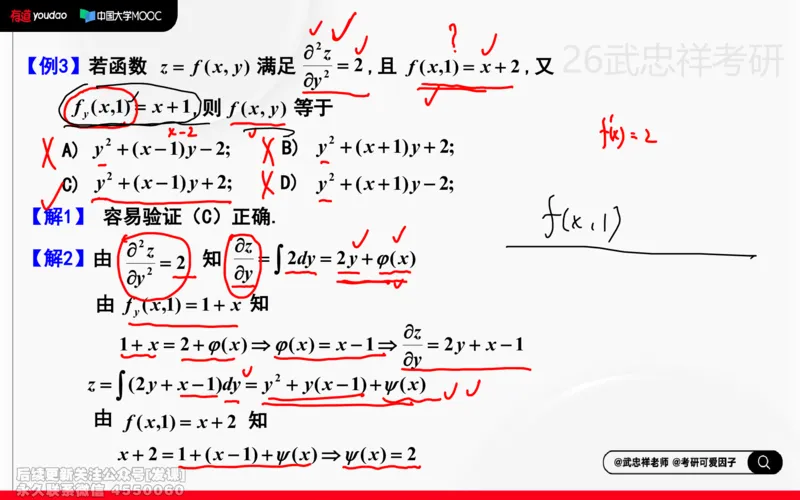 有道 youdao 中国大学MOOC
26武忠祥考研
【例3】若函数 z = f(x, y) 满足 ∂²z/∂y² = 2, 且 f(x,1) = x + 2, 又
?
f_y(x,1) = x + 1, 则 f(x, y) 等于
x-2
f'(x) = 2
A) y² + (x − 1)y − 2; B) y² + (x + 1)y + 2;
C) y² + (x − 1)y + 2; D) y² + (x + 1)y − 2;
【解1】 容易验证（C）正确.
f(x,1)
【解2】由 ∂²z/∂y² = 2 知 ∂z/∂y = ∫2dy = 2y + φ(x)
由 f_y(x,1) = 1 + x 知
1 + x = 2 + φ(x) ⇒ φ(x) = x − 1 ⇒ ∂z/∂y = 2y + x − 1
z = ∫(2y + x − 1)dy = y² + y(x − 1) + ψ(x)
由 f(x,1) = x + 2 知
x + 2 = 1 + (x − 1) + ψ(x) ⇒ ψ(x) = 2
@武忠祥老师 @考研可爱因子
后续更新关注公众号[发课]
永久联系微信 4550060